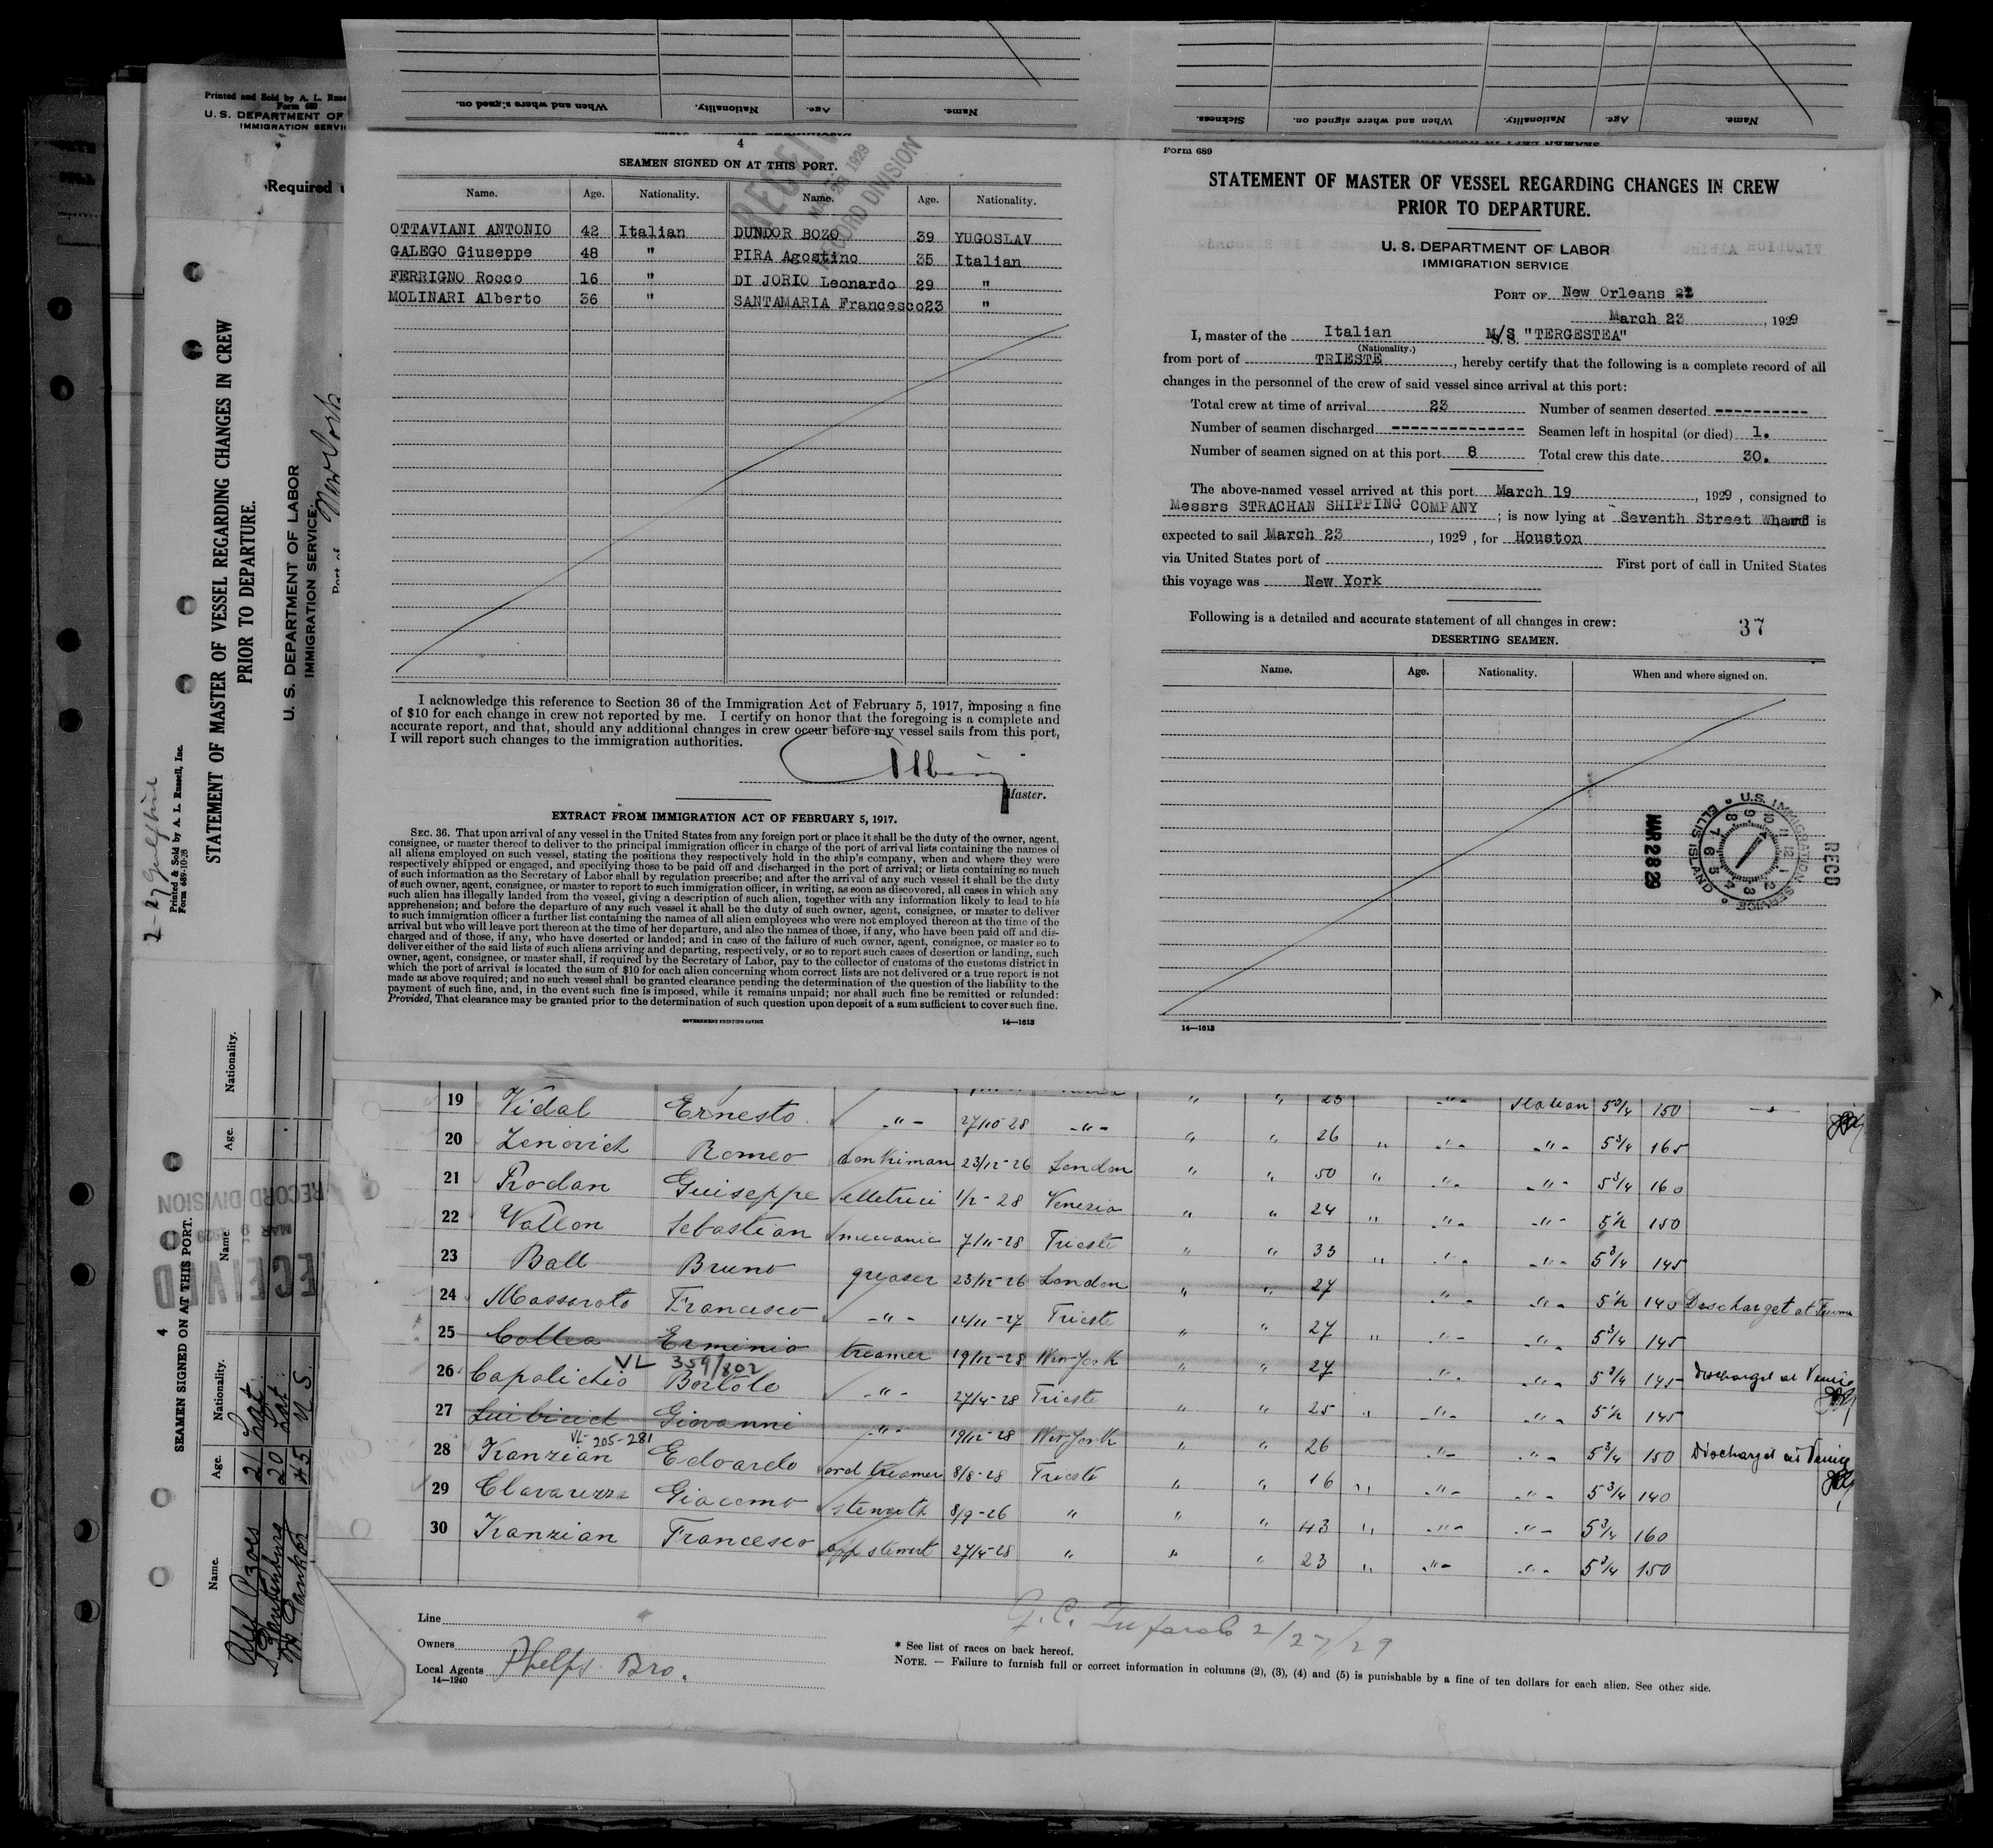 Printed and Sold by A. L. Russ
Form 680
U. S. DEPARTMENT OF
IMMIGRATION SERVI
Required
When and where signed on.
Nationality.
Age.
Name.
Sickness.
When and where signed on.
Nationality.
Age.
Name.
4
SEAMEN SIGNED ON AT THIS PORT.
Name. Age. Nationality. Name. Age. Nationality.
OTTAVIANI ANTONIO 42 Italian DUNDOR BOZO 39 YUGOSLAV
GALEGO Giuseppe 48 " PIRA Agostino 35 Italian
FERRIGNO Rocco 16 " DI JORIO Leonardo 29 "
MOLINARI Alberto 36 " SANTAMARIA Francesco 23 "
1929
RECORD DIVISION
I acknowledge this reference to Section 36 of the Immigration Act of February 5, 1917, imposing a fine
of $10 for each change in crew not reported by me. I certify on honor that the foregoing is a complete and
accurate report, and that, should any additional changes in crew occur before my vessel sails from this port,
I will report such changes to the immigration authorities.
Master.
EXTRACT FROM IMMIGRATION ACT OF FEBRUARY 5, 1917.
SEC. 36. That upon arrival of any vessel in the United States from any foreign port or place it shall be the duty of the owner, agent,
consignee, or master thereof to deliver to the principal immigration officer in charge of the port of arrival lists containing the names of
all aliens employed on such vessel, stating the positions they respectively hold in the ship's company, when and where they were
respectively shipped or engaged, and specifying those to be paid off and discharged in the port of arrival; or lists containing so much
of such information as the Secretary of Labor shall by regulation prescribe; and after the arrival of any such vessel it shall be the duty
of such owner, agent, consignee, or master to report to such immigration officer, in writing, as soon as discovered, all cases in which any
such alien has illegally landed from the vessel, giving a description of such alien, together with any information likely to lead to his
apprehension; and before the departure of any such vessel it shall be the duty of such owner, agent, consignee, or master to deliver
to such immigration officer a further list containing the names of all alien employees who were not employed thereon at the time of the
arrival but who will leave port thereon at the time of her departure, and also the names of those, if any, who have been paid off and dis-
charged and of those, if any, who have deserted or landed; and in case of the failure of such owner, agent, consignee, or master so to
deliver either of the said lists of such aliens arriving and departing, respectively, or so to report such cases of desertion or landing, such
owner, agent, consignee, or master shall, if required by the Secretary of Labor, pay to the collector of customs of the customs district in
which the port of arrival is located the sum of $10 for each alien concerning whom correct lists are not delivered or a true report is not
made as above required; and no such vessel shall be granted clearance pending the determination of the question of the liability to the
payment of such fine, and, in the event such fine is imposed, while it remains unpaid; nor shall such fine be remitted or refunded:
Provided, That clearance may be granted prior to the determination of such question upon deposit of a sum sufficient to cover such fine.
GOVERNMENT PRINTING OFFICE 14—1613
Form 689
STATEMENT OF MASTER OF VESSEL REGARDING CHANGES IN CREW
PRIOR TO DEPARTURE.
U. S. DEPARTMENT OF LABOR
IMMIGRATION SERVICE
PORT OF New Orleans
March 23, 1929
I, master of the Italian M/S "TERGESTEA"
(Nationality.)
from port of TRIESTE, hereby certify that the following is a complete record of all
changes in the personnel of the crew of said vessel since arrival at this port:
Total crew at time of arrival 23 Number of seamen deserted ----------
Number of seamen discharged -------------- Seamen left in hospital (or died) 1.
Number of seamen signed on at this port 8 Total crew this date 30.
The above-named vessel arrived at this port March 19, 1929, consigned to
Messrs STRACHAN SHIPPING COMPANY; is now lying at Seventh Street Wharf is
expected to sail March 23, 1929, for Houston
via United States port of First port of call in United States
this voyage was New York
Following is a detailed and accurate statement of all changes in crew:
37
DESERTING SEAMEN.
Name. Age. Nationality. When and where signed on.
RECD
U.S. IMMIGRATION SERVICE
ELLIS ISLAND
MAR 28 29
14—1613
19 Vidal Ernesto -"- 27/10-28 -"- " " 25 -"- Italian 5 3/4 150
20 Zenovich Romeo donkiman 23/12-26 London " " 26 " -"- -"- 5 3/4 165
21 Rodan Guiseppe elletrici 1/2-28 Venezia " " 50 " -"- -"- 5 3/4 160
22 Vallon Sebastian meccanic 7/11-28 Trieste " " 24 " -"- -"- 5 1/2 150
23 Ball Bruno greaser 23/12-26 London " " 33 " -"- -"- 5 3/4 145
24 Massarato Francesco -"- 12/11-27 Trieste " " 27 -"- -"- 5 1/2 140 Descharget at Fiume
25 Collea Erminio treamer 19/12-28 New-York " " 27 " -"- -"- 5 3/4 145
VL 359/802
26 Capolichio Bortolo -"- 27/4-28 Trieste " " 27 -"- -"- 5 3/4 145 Discharged at Venice
27 Giovanni -"- 19/12-28 New-York " " 25 " -"- -"- 5 1/2 145
VL- 205-281
28 Kanzian Edoardo ord treamer 8/8-28 Trieste " " 26 -"- -"- 5 3/4 150 Discharged at Venice
29 Clavarezza Giacomo 8/9-26 " " " 16 " -"- -"- 5 3/4 140
30 Kanzian Francesco app stewart 27/4-28 " " " 43 " -"- -"- 5 3/4 160
23 " -"- -"- 5 3/4 150
Line
Owners
Local Agents Phelps Bro.
14—1240
2/27/29
* See list of races on back hereof.
NOTE. — Failure to furnish full or correct information in columns (2), (3), (4) and (5) is punishable by a fine of ten dollars for each alien. See other side.
Printed & Sold by A. L. Russell, Inc.
Form 689-10-28
STATEMENT OF MASTER OF VESSEL REGARDING CHANGES IN CREW
PRIOR TO DEPARTURE.
U. S. DEPARTMENT OF LABOR
IMMIGRATION SERVICE.
Port of New York
4
SEAMEN SIGNED ON AT THIS PORT.
Name. Age. Nationality. Name. Age. Nationality.
21 Lat.
20 Lat.
45 U S.
RECORD DIVISION
MAR 9 1929